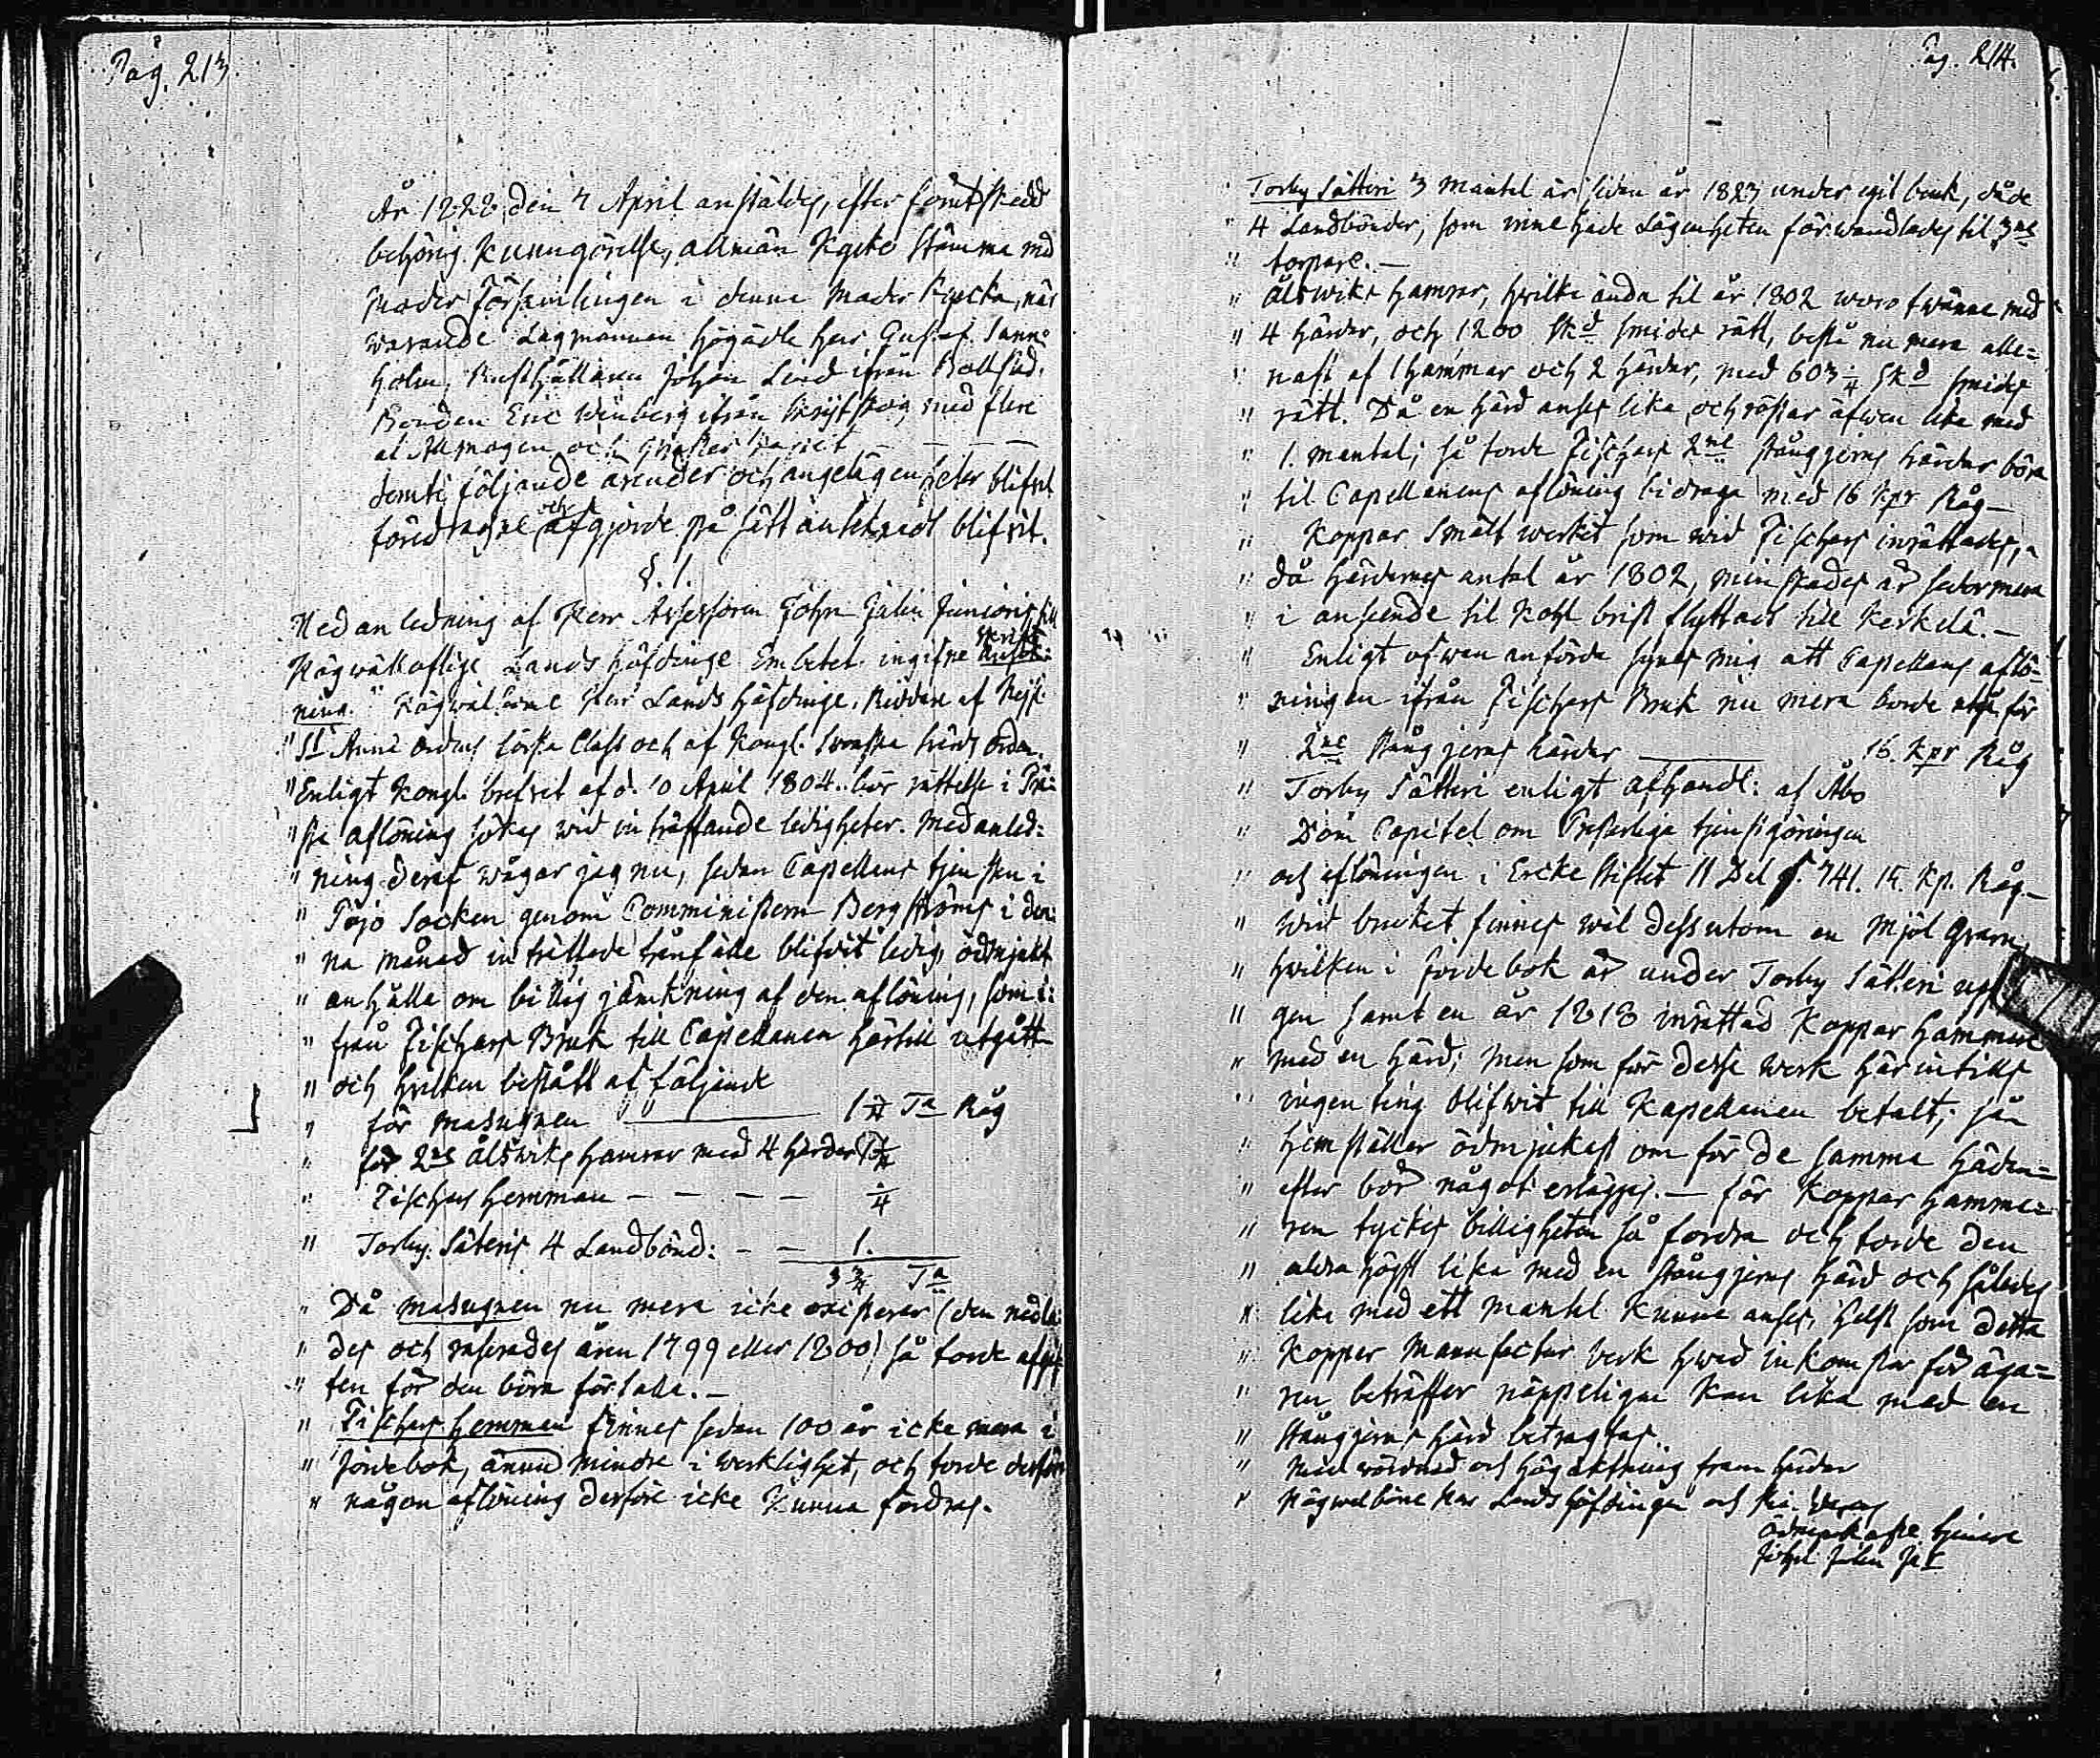 Pag. 213.
År 1828 den 7 April anstäldes, efter förut skedd
behörig Kunngörelse, allmän Kyrko Stämma med
Moder Församlingen i denne Moder Kyrcka, när
warande Lagmannen Högädle Herr Gustaf Sann-
holm, Rusthållaren Johan Lind ifrån Bollstad,
Bonden Eric Winberg ifrån med flere
af Allmogen och
hwarwid följande ärender och angelägenheter blifwit
föredragne och afgjorde på sätt antecknadt blifvit.
§. 1.
Med anledning af Herr Assessoren John Julin Junioris, till
Högwälloflige Landshöfdinge Embetet ingifne Skrift
" Högwälborne Herr Landshöfdinge, Riddare af Rysk
" St Anne Ordens första Class och af Kongl. Swenska Swärds Orden.
" Enligt Kongl. brefvet af d. 10 April 1804. bör rättelse i Prä-
" sta aflöning sökas wid inträffande ledigheter. Med anled-
" ning deraf wågar jag nu, sedan Capellans tjensten i
" Pojo Socken genom Comministern Bergströms i den-
" na månad inträffade frånfälle blifvit ledig, ödmjukt
" anhålla om billig jämkning af den aflöning, som i-
" från Fiskars Bruk till Capellanen härtill utgått
" och hvilken bestått af följande
" för masugnen 1 3/4 Ta Råg
" för 2ne Älswiks hamrar med 4 härdar
" Fiskars hemman - - - - 1/4
" Torby Säteris 4 Landbönd: - - 1.
3 3/4 Ta
" Då masugnen nu mera icke existerar (den nedla-
" des och raserades åren 1799 eller 1800) så torde afgif-
" ten för den böra förfalla. -
" Fiskars hemman finnes sedan 100 år icke mera i
" Jordebok, ännu mindre i werklighet, och torde derföre
" någon aflöning derföre icke kunna fordras.
Pag. 214.
Torby Sätteri 3 mantel är sedan år 1823 under eget bruk, då de
" 4 Landbönder, som innehade Lägenheten förwandlades til 3ne
" torpare. -
" Älswiks hamrar, hwilke ända til år 1802 woro twänne med
" 4 härdar, och 1200 Skd smides rätt, bestå nu mera alle-
" nast af 1 hammar och 2 härdar, med 603 1/4 Skd smides
" rätt. Då en härd anses lika och röstar äfwen lika med
" 1. mantal; så torde Fiskars 2ne stångjerns härdar böra
" til Capellanens aflöning bidraga med 16 kpr Råg -
" Koppar Smält werket som wid Fiskars inrättades,
" då härdarnes antal år 1802, minskades är sedermera
" i anseende til Kohl brist flyttadt till Kerkelä. -
" Enligt ofwan anförda synes mig att Capellans aflö-
" ningen ifrån Fiskars Bruk nu mera borde utgå för
" 2ne stångjerns härdar 16. kpr Råg
" Torby Sätteri enligt afhandl: af Åbo
" Dom Capitel om Presterliga tjenstgöringen
" och aflöningen i Ercke Stiftet II Del §. 741. 15. Kp. Råg -
" wid bruket finnes wäl dessutom en Mjöl Qvarn,
" hvilken i Jordebok är under Torby Sätteri upta-
" gen samt en år 1818 inrättad Koppar hammare
" med en härd; men som för desse werk här intills
" ingen ting blifwit till Kapellanen betalt; så
" hemställer ödmjukast om för de samma häden-
" efter bör något erläggas. - för Koppar hamma-
" ren tyckes billigheten så fordra och torde den
" aldra högst lika med en stångjerns härd och således
" lika med ett mantel kunna anses, helst som detta
" Koppar Manufactur verk hwad inkomster för äga-
" ren beträffar näppeligen kan lika med en
" stångjerns härd betragtas.
" Med wördnad och högaktning framhärdar
" Högwelborne Herr Landshöfdingen och
ödmjukaste tjenare
John Julin Jr